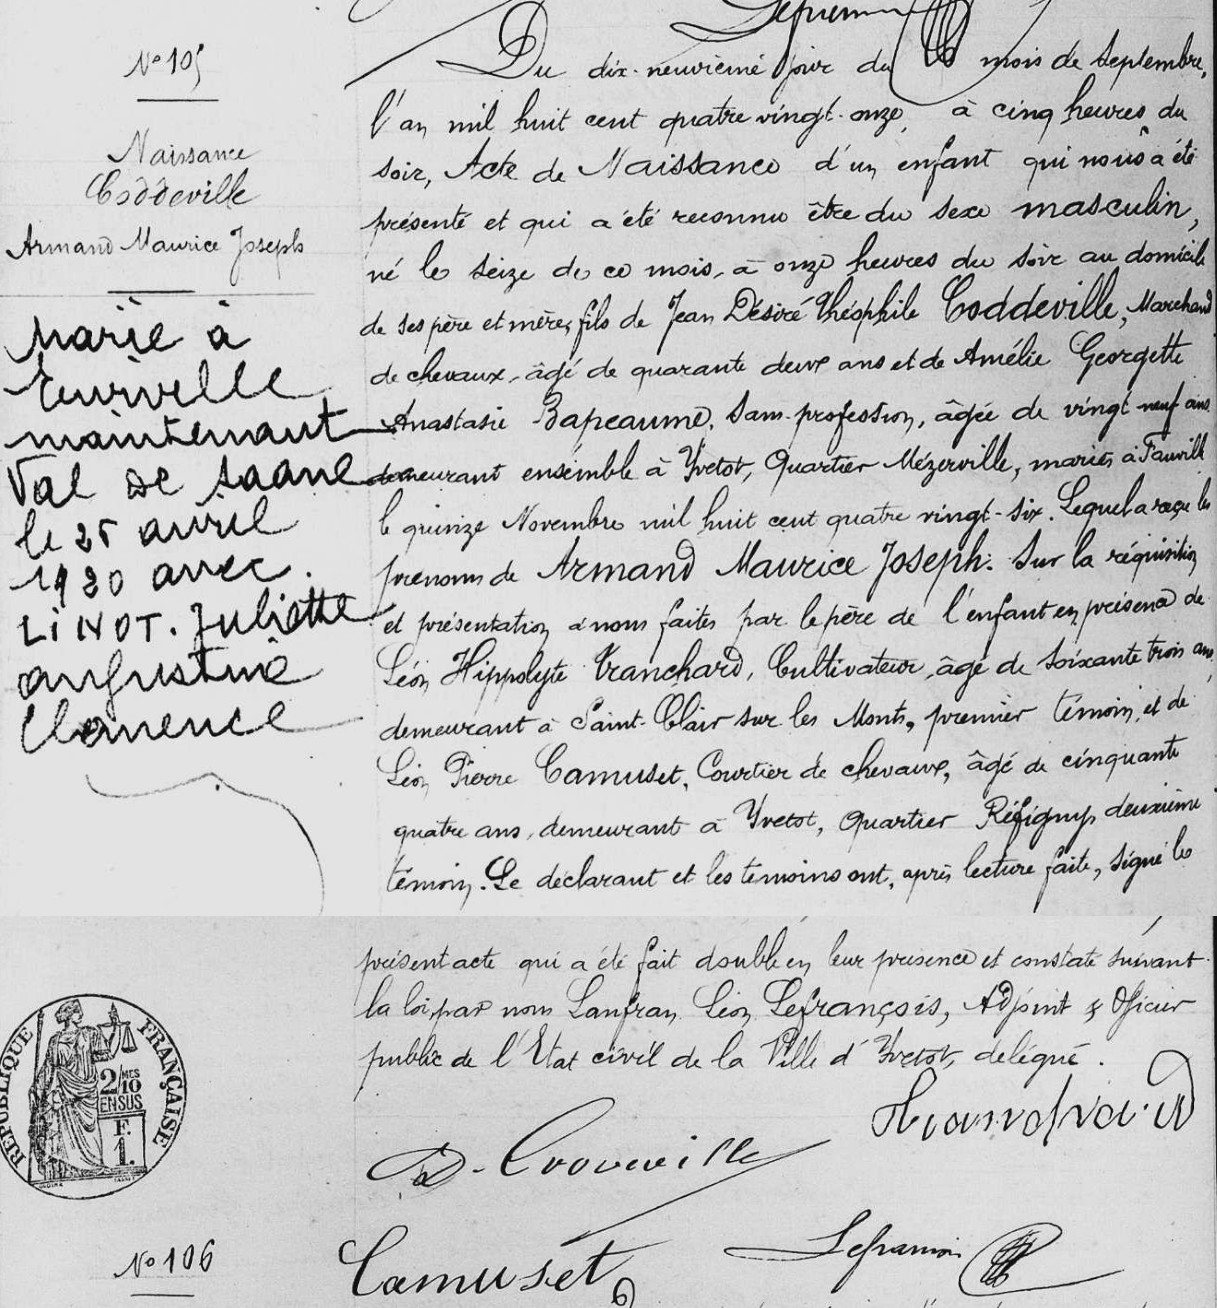 N° 105
Naissance
Coddeville
Armand Maurice Joseph
Marié à
Eurville
maintenant
Val de Saane
le 25 avril
1920 avec
LiNOT. Juliette
augustine
Clémence
Du dix-neuvième jour du mois de Septembre,
l'an mil huit cent quatre vingt-onze, à cinq heures du
soir, Acte de Naissance d'un enfant qui nous a été
présenté et qui a été reconnu être du sexe masculin,
né le seize de ce mois, à onze heures du soir au domicile
de ses père et mère, fils de Jean Désiré Théophile Coddeville, Marchand
de chevaux, âgé de quarante deux ans et de Amélie Georgette
Anastasie Bapeaume, Sans profession, âgée de vingt neuf ans
demeurant ensemble à Yvetot, Quartier Mézerville, mariés à Fauville
le quinze Novembre mil huit cent quatre vingt-six. Lequel a reçu les
prénoms de Armand Maurice Joseph. Sur la réquisition
et présentation à nous faites par le père de l'enfant en présence de
Léon Hippolyte Tranchard, Cultivateur, âgé de soixante trois ans,
demeurant à Saint-Clair sur les Monts, premier témoin, et de
Léon Pierre Camuset, Courtier de chevaux, âgé de cinquante
quatre ans, demeurant à Yvetot, Quartier Réfigny, deuxième
témoin. Le déclarant et les témoins ont, après lecture faite, signé le
présent acte qui a été fait double en leur présence et constaté suivant
la loi, par nous Lanfran Léon Lefrançois, Adjoint & Officier
public de l'Etat civil de la Ville d'Yvetot, délégué.
RÉPUBLIQUE FRANÇAISE
2/10 MES
EN SUS
F.
1.
Tranchard
Camuset
Lefrançois
N° 106